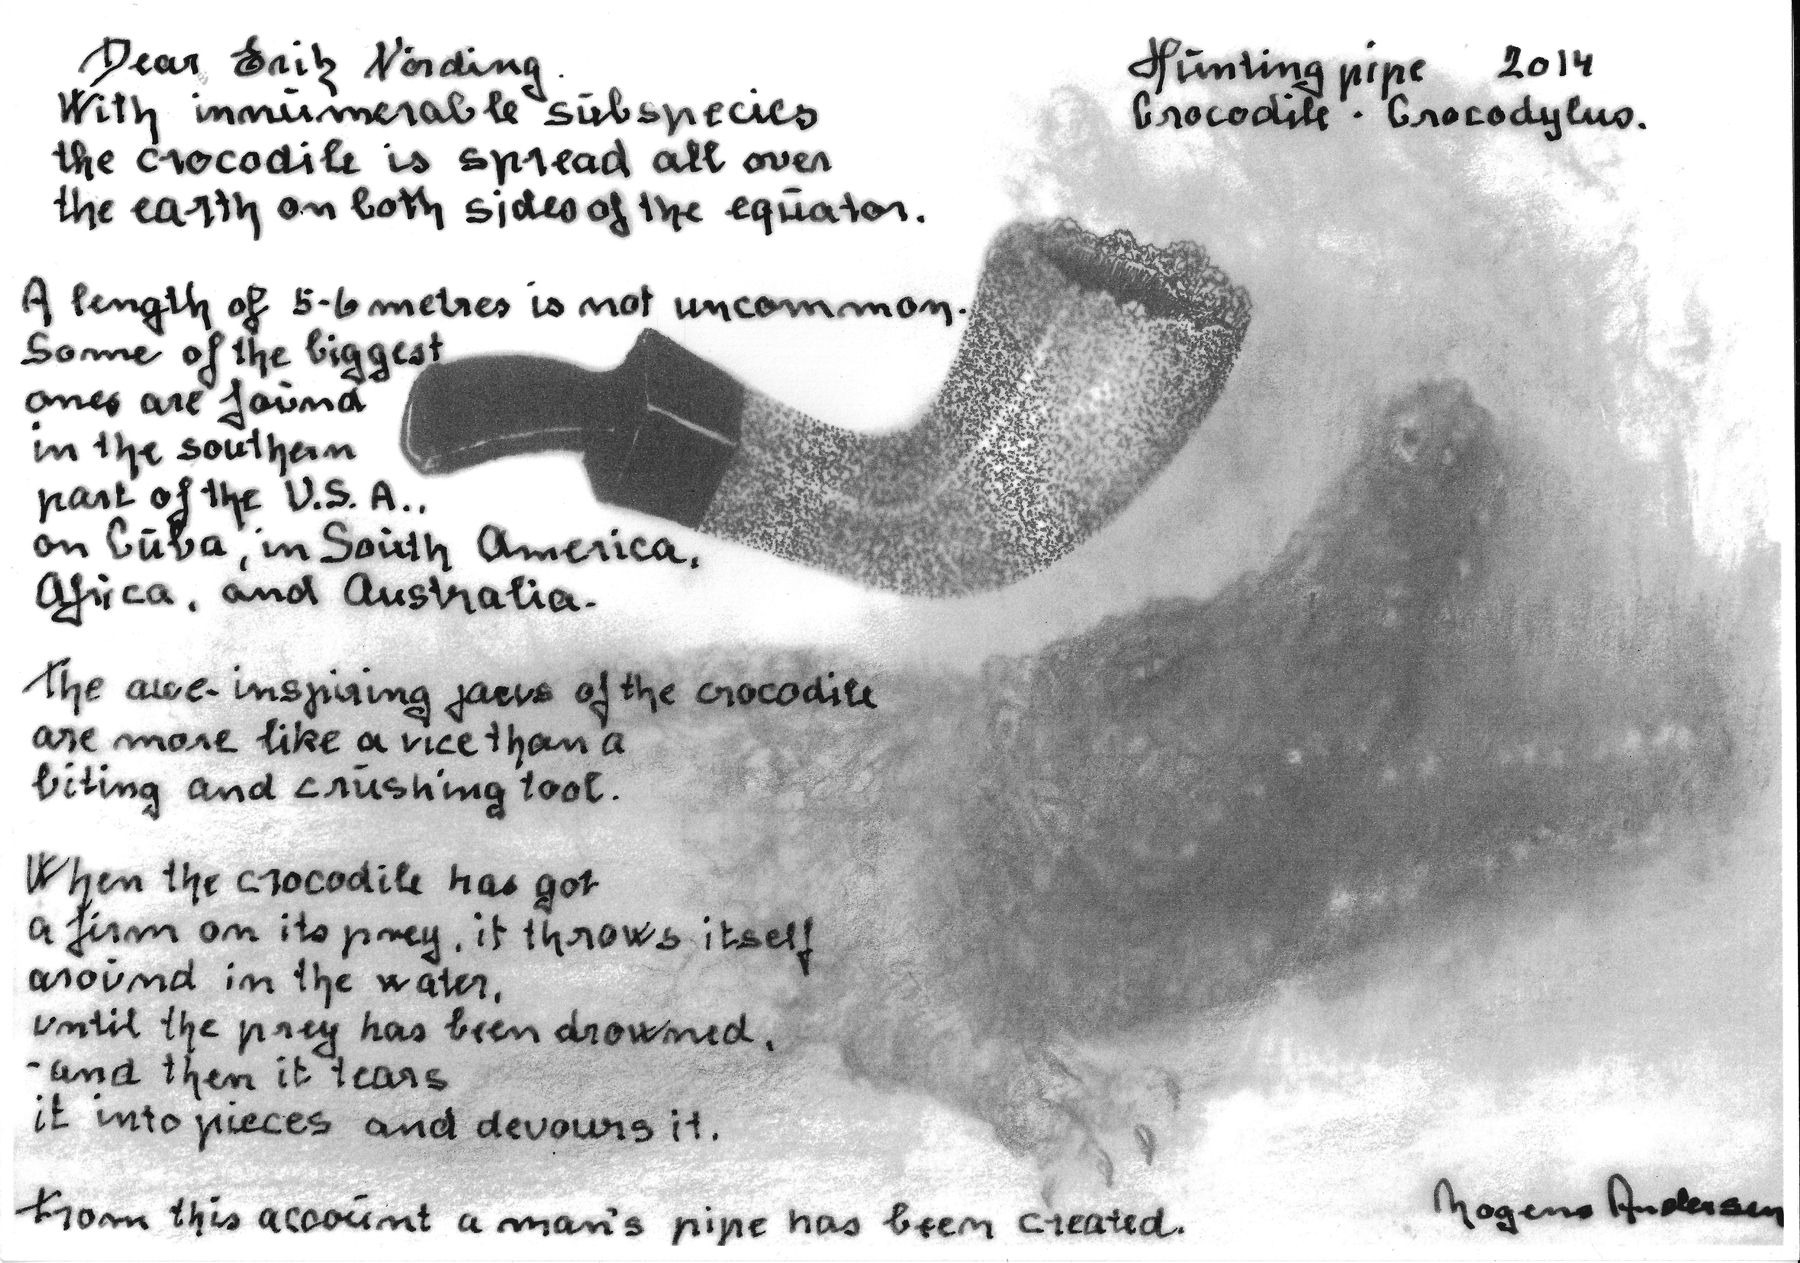 Dear Erik Nörding.
With innumerable subspecies
the crocodile is spread all over
the earth on both sides of the equator.
A length of 5-6 metres is not uncommon.
Some of the biggest
ones are found
in the southern
part of the U.S.A.,
on Cuba, in South America,
Africa, and Australia.
The awe-inspiring jaws of the crocodile
are more like a vice than a
biting and crushing tool.
When the crocodile has got
a firm on its prey, it throws itself
around in the water,
until the prey has been drowned,
-and then it tears
it into pieces and devours it.
From this account a man's pipe has been created.
Hunting pipe 2014
Crocodile · Crocodylus.
Mogens Andersen